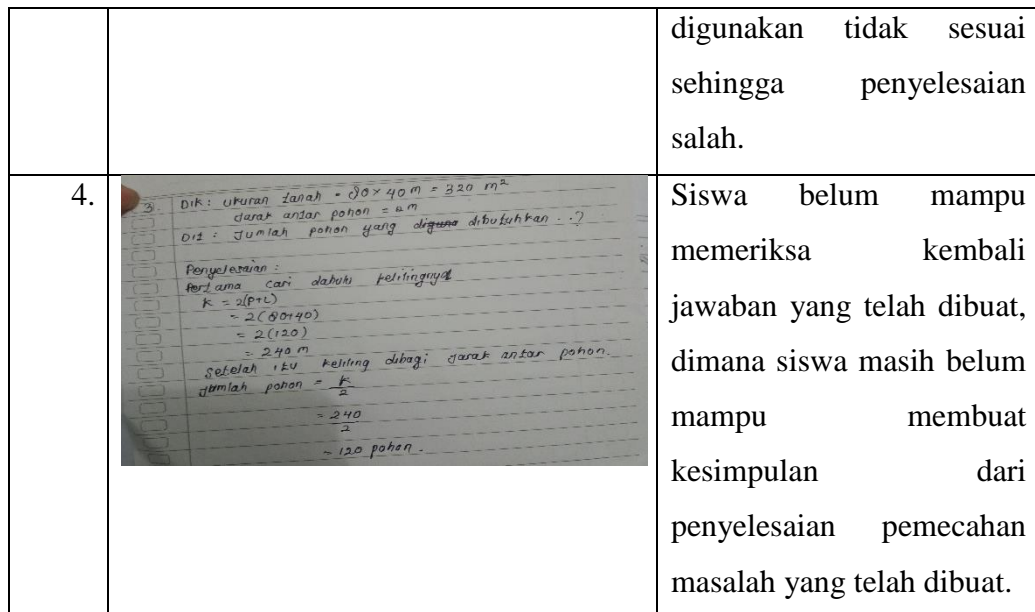 digunakan tidak sesuai
sehingga penyelesaian
salah.
4.
3.
Dik : ukuran tanah = 80 × 40 m = 320 m²
Jarak antar pohon = 2 m
Dit : Jumlah pohon yang diguna dibutuhkan ..?
Penyelesaian :
Pertama cari dahulu kelilingnya
K = 2(P+L)
= 2(80+40)
= 2(120)
= 240 m
Setelah itu keliling dibagi jarak antar pohon.
Jumlah pohon = K
2
= 240
2
= 120 pohon.
Siswa belum mampu
memeriksa kembali
jawaban yang telah dibuat,
dimana siswa masih belum
mampu membuat
kesimpulan dari
penyelesaian pemecahan
masalah yang telah dibuat.